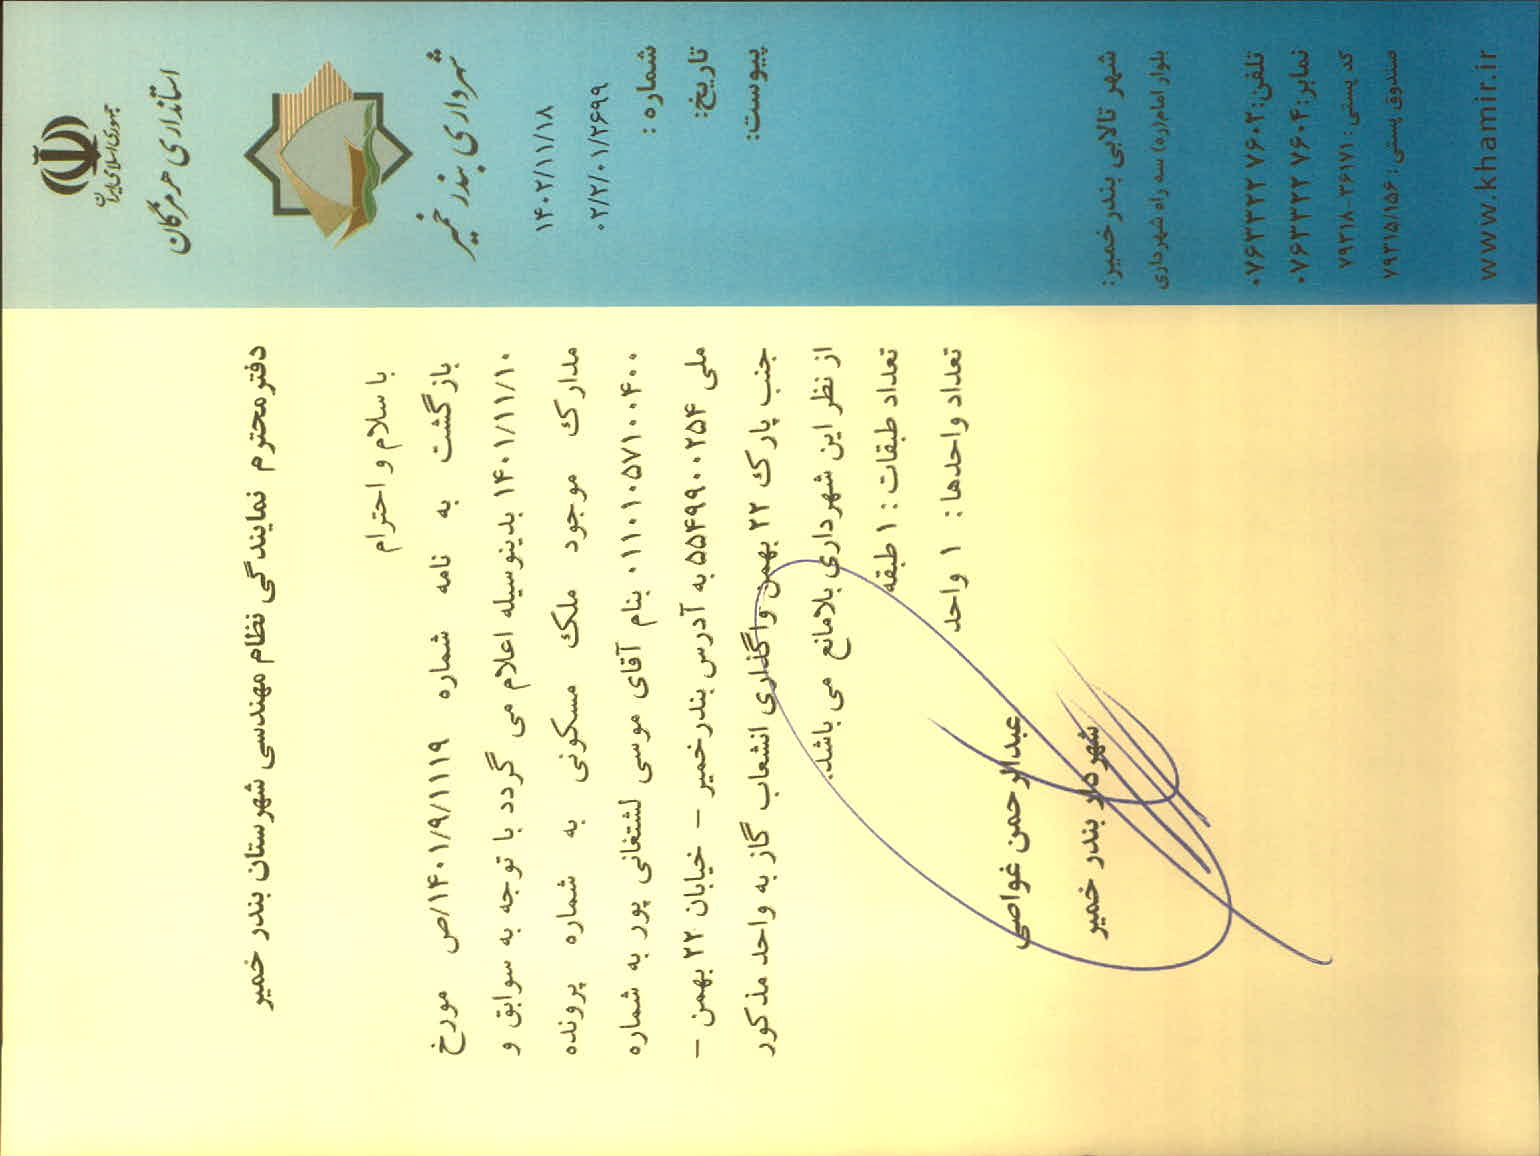 جمهوری اسلامی ایران
استانداری هرمزگان
شهرداری بندر خمیر
۱۴۰۲/۱۱/۱۸
۰۲/۲/۰۱/۲۶۹۹
شماره :
تاریخ:
پیوست:
دفتر محترم نمایندگی نظام مهندسی شهرستان بندر خمیر
با سلام و احترام
بازگشت به نامه شماره ۱۴۰۱/۹/۱۱۱۹/ص مورخ
۱۴۰۱/۱۱/۱۰ بدینوسیله اعلام می گردد با توجه به سوابق و
مدارک موجود ملک مسکونی به شماره پرونده
۰۱۱۰۱۰۵۷۱۰۰۴۰۰ بنام آقای موسی لشتغانی پور به شماره
ملی ۵۵۴۹۹۰۰۲۵۴ به آدرس بندرخمیر - خیابان ۲۲ بهمن -
جنب پارک ۲۲ بهمن واگذاری انشعاب گاز به واحد مذکور
از نظر این شهرداری بلامانع می باشد.
تعداد طبقات : ۱ طبقه
تعداد واحدها : ۱ واحد
عبدالرحمن غواصی
شهردار بندر خمیر
شهر تالابی بندرخمیر:
بلوار امام(ره) سه راه شهرداری
تلفن: ۰۷۶۳۳۲۲ ۷۶۰۲
نمابر: ۰۷۶۳۳۲۲ ۷۶۰۴
کد پستی : ۳۶۱۷۱-۷۹۳۱۸
صندوق پستی : ۷۹۳۱۵/۱۵۶
www.khamir.ir